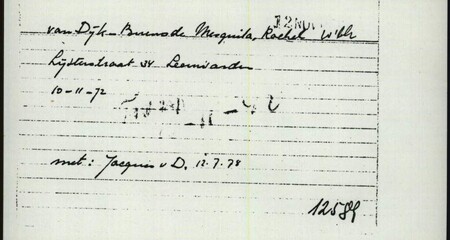 12 NOV
van Dijk-Bueno de Mesquita, Rachel
Lijsterstraat 34 Leeuwarden
10-11-72
met: Jacques v D. 12.7.78
12589